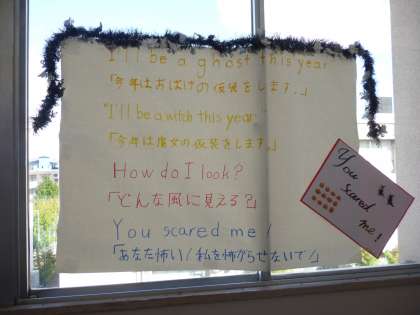 I'll be a ghost this year
「今年はおばけの仮装をします.」
"I'll be a witch this year"
「今年は魔女の仮装をします.」
How do I look?
「どんな風に見える?」
You scared me!
「あなた怖い!私を怖がらせないで!」
You
scared
me!